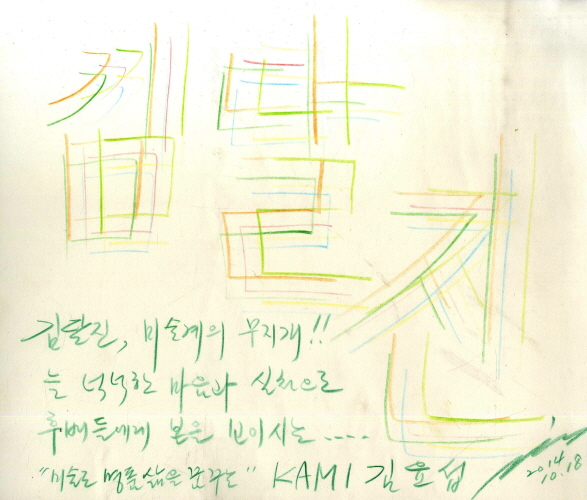 김달진
김달진, 미술계의 무지개!!
늘 넉넉한 마음과 실천으로
후배들에게 본을 보이시는 .....
"미술로 명품삶을 꿈꾸는" KAMI 김효섭 2014. 10.18